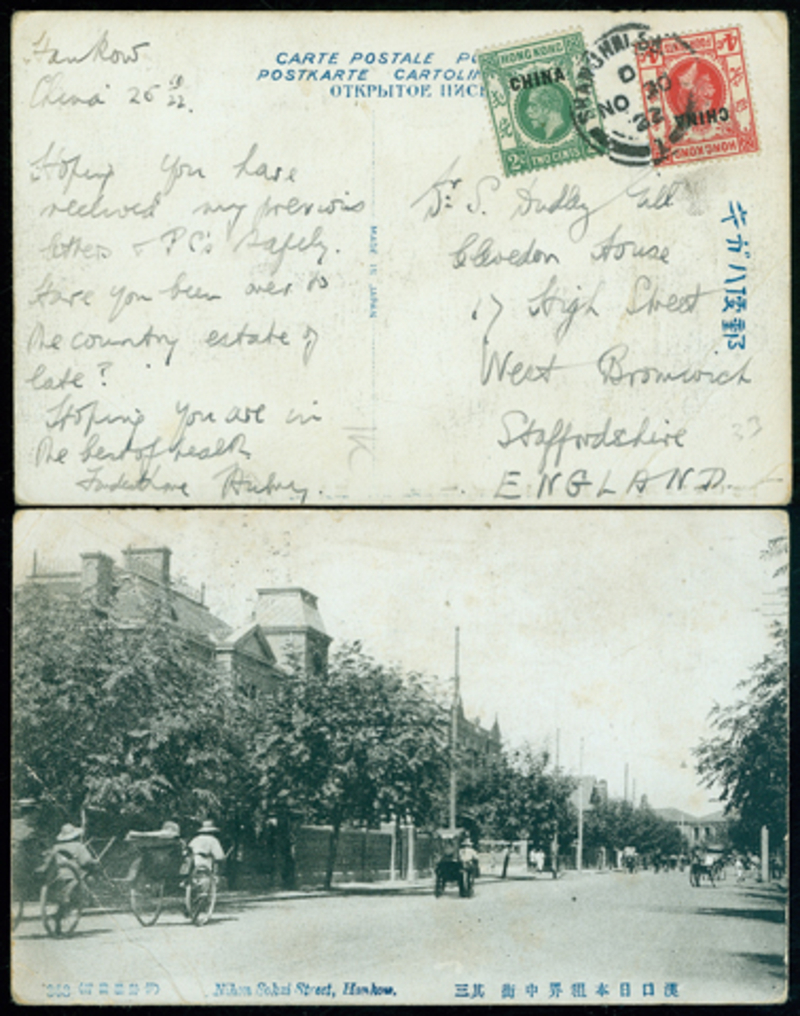 CARTE POSTALE
POSTKARTE CARTOLIN
ОТКРЫТОЕ ПИСЬ
HONG KONG
CHINA
2c TWO CENTS
HONG KONG
CHINA
FOUR CENTS
SHANGHAI
Hankow
China 26 10/22.
Hoping you have
received my previous
letters & P.C's safely.
Have you been over to
the country estate of
late?
Hoping you are in
the best of health
Aubrey.
MADE IN JAPAN
Dr S. Dudley Gill
Clevedon House
17 High Street
West Bromwich
Staffordshire
ENGLAND.
33
Street, Hankow.
漢口日本租界中街 其三